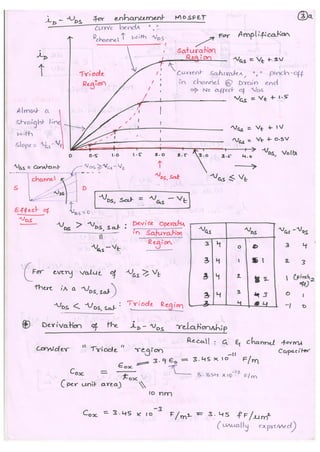 iD - vDS for enhancement MOSFET
③a
Curve bends ∵
Rchannel ↑ with vDS
For Amplification
iD
Saturation Region
vGS = Vt + 2V
Triode Region
Current saturates, ∵ pinch-off
in channel @ Drain end
⇒ No affect of VDS
vGS = Vt + 1.5
Almost a
straight line
with
slope ∝ vGS - Vt
vGS = Vt + 1V
vGS = Vt + 0.5V
0 0.5 1.0 1.5 2.0 2.5 3.0 3.5 4.0 vDS, Volts
vGS = constant
vDS, sat
vGS ≤ Vt
channel
S D
vDS
vDS, sat = vGS - Vt
vDS = 0
Effect of
vDS
vDS > vDS, sat : Device Operates
in Saturation
Region
vGS - Vt
vGS vDS vGS - vDS
3 4 0 0 3 4
3 4 1 1 2 3
3 4 2 2 1 (pinch off)
3 4 3 3 0 1
3 4 4 4 -1 0
(For every value of vGS ≥ Vt
there is a vDS, sat)
vDS < vDS, sat : Triode Region
⊕ Derivation of the iD - vDS relationship
Recall : G & channel forms
Capacitor
Consider "Triode" region
Cox = εox / tox = 3.9 ε0 = 3.45 × 10⁻¹¹ F/m
8.854 × 10⁻¹² F/m
(per unit area)
10 nm
Cox = 3.45 × 10⁻³ F/m² = 3.45 fF/µm²
(usually expressed)